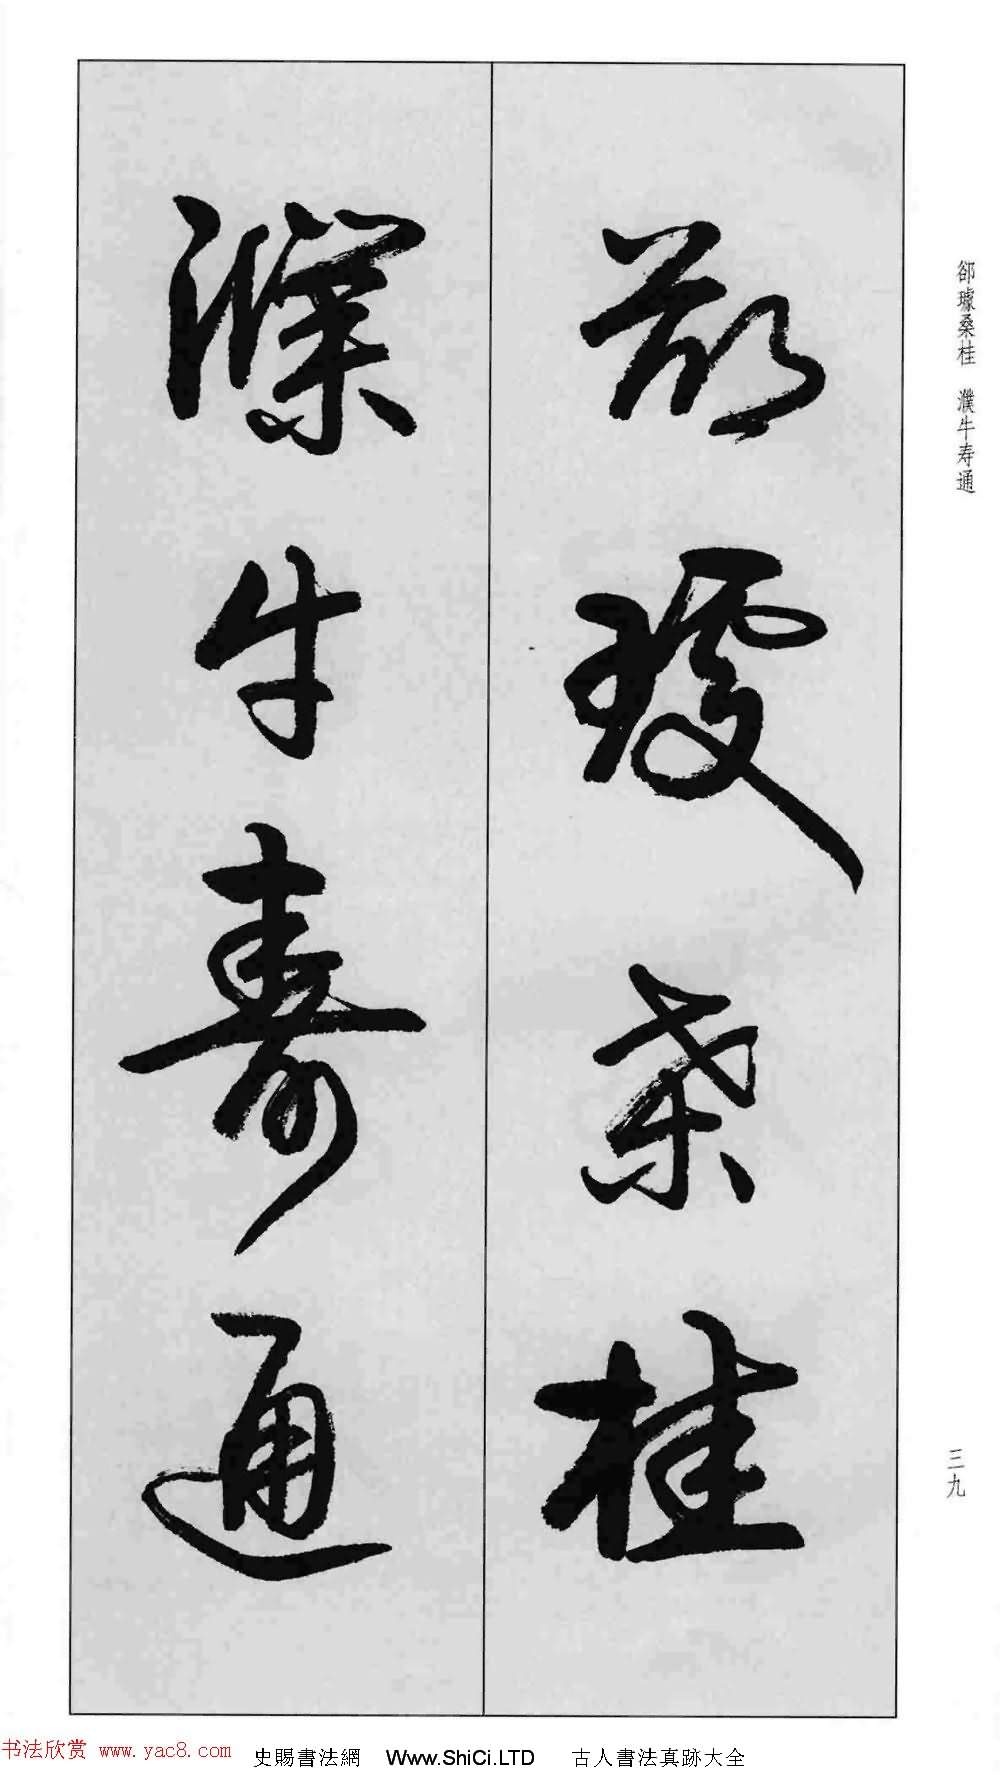 郤璩桑桂
濮牛壽通
郤璩桑桂 濮牛寿通
三九
书法欣赏 www.yac8.com
史賜書法網 Www.ShiCi.LTD 古人書法真跡大全